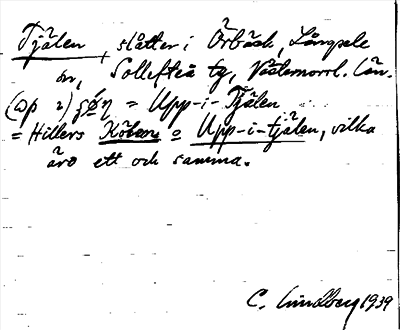 Tjälen, slåtter i Örbäck, Långsele
sn, Sollefteå tg, Västernorrl. län.
= Upp-i-Tjälen
= Hillers Kölen o Upp-i-tjälen, vilka
äro ett och samma.
C. Lindberg 1939